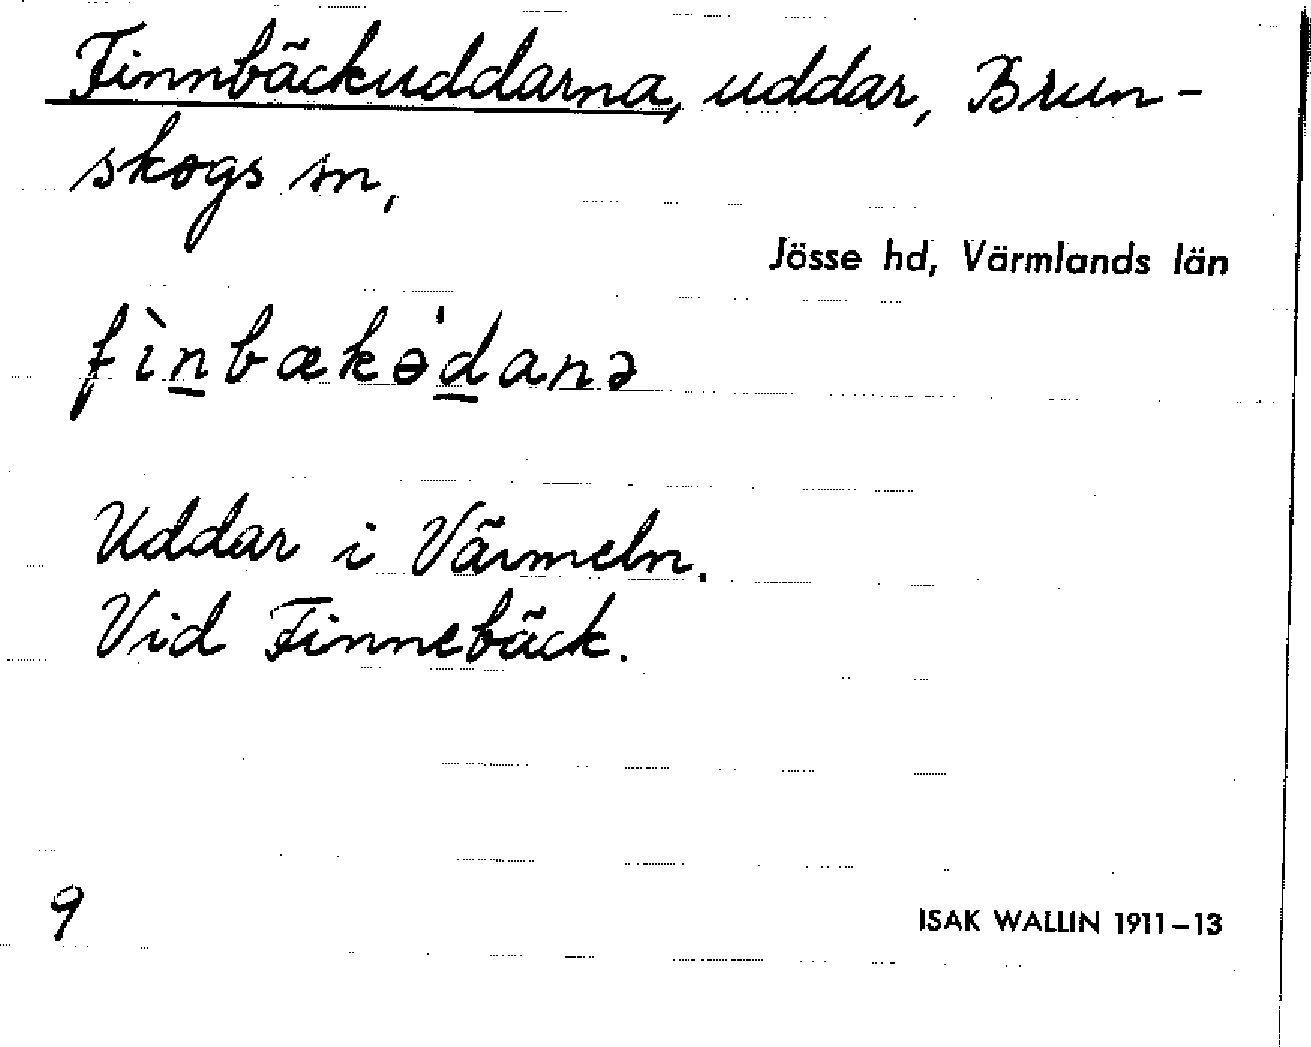 Finnbäckuddarna, uddar, Brun-
skogs sn,
Jösse hd, Värmlands län
fìn̲bækɵ̍d̲anə
Uddar i Värmeln.
Vid Finnebäck.
9
ISAK WALLIN 1911–13